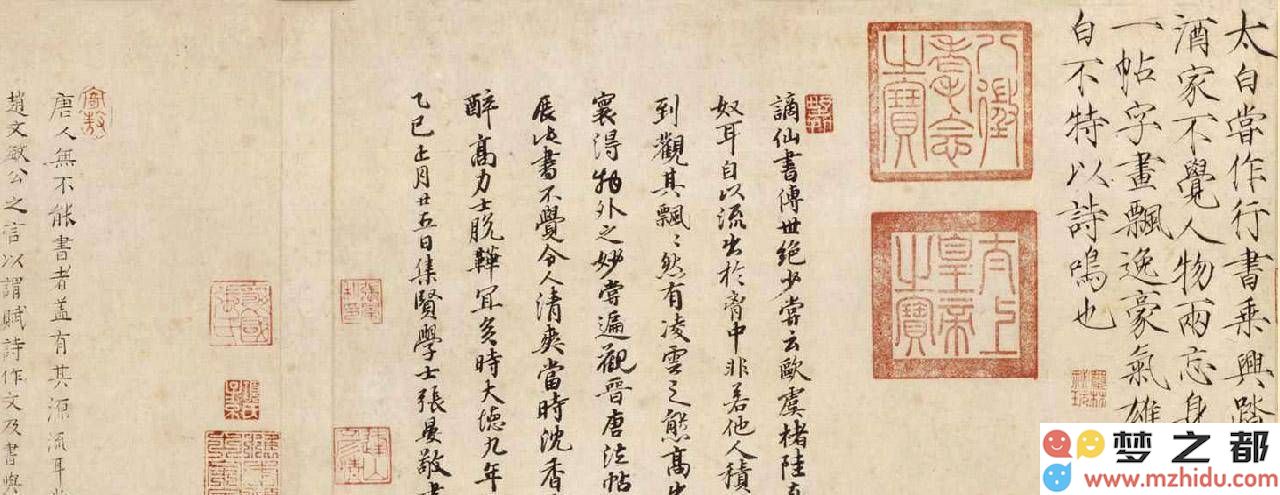 太白嘗作行書乘興踏
酒家不覺人物兩忘身
一帖字畫飄逸豪氣雄
白不特以詩鳴也
八徵耄念之寶
太上皇帝之寶
謫仙書傳世絕少嘗云歐虞褚陸真
奴耳自以流出於胷中非若他人積
到觀其飄〻然有凌雲之態高出
襄得物外之妙嘗遍觀晉唐法帖
展此書不覺令人清爽當時沈香
醉高力士脫鞾宜矣時大德九年
乙巳正月廿五日集賢學士張晏敬書
唐人無不能書者蓋有其源流耳
趙文敏公之言以謂賦詩作文及書與
梦之都
www.mzhidu.com